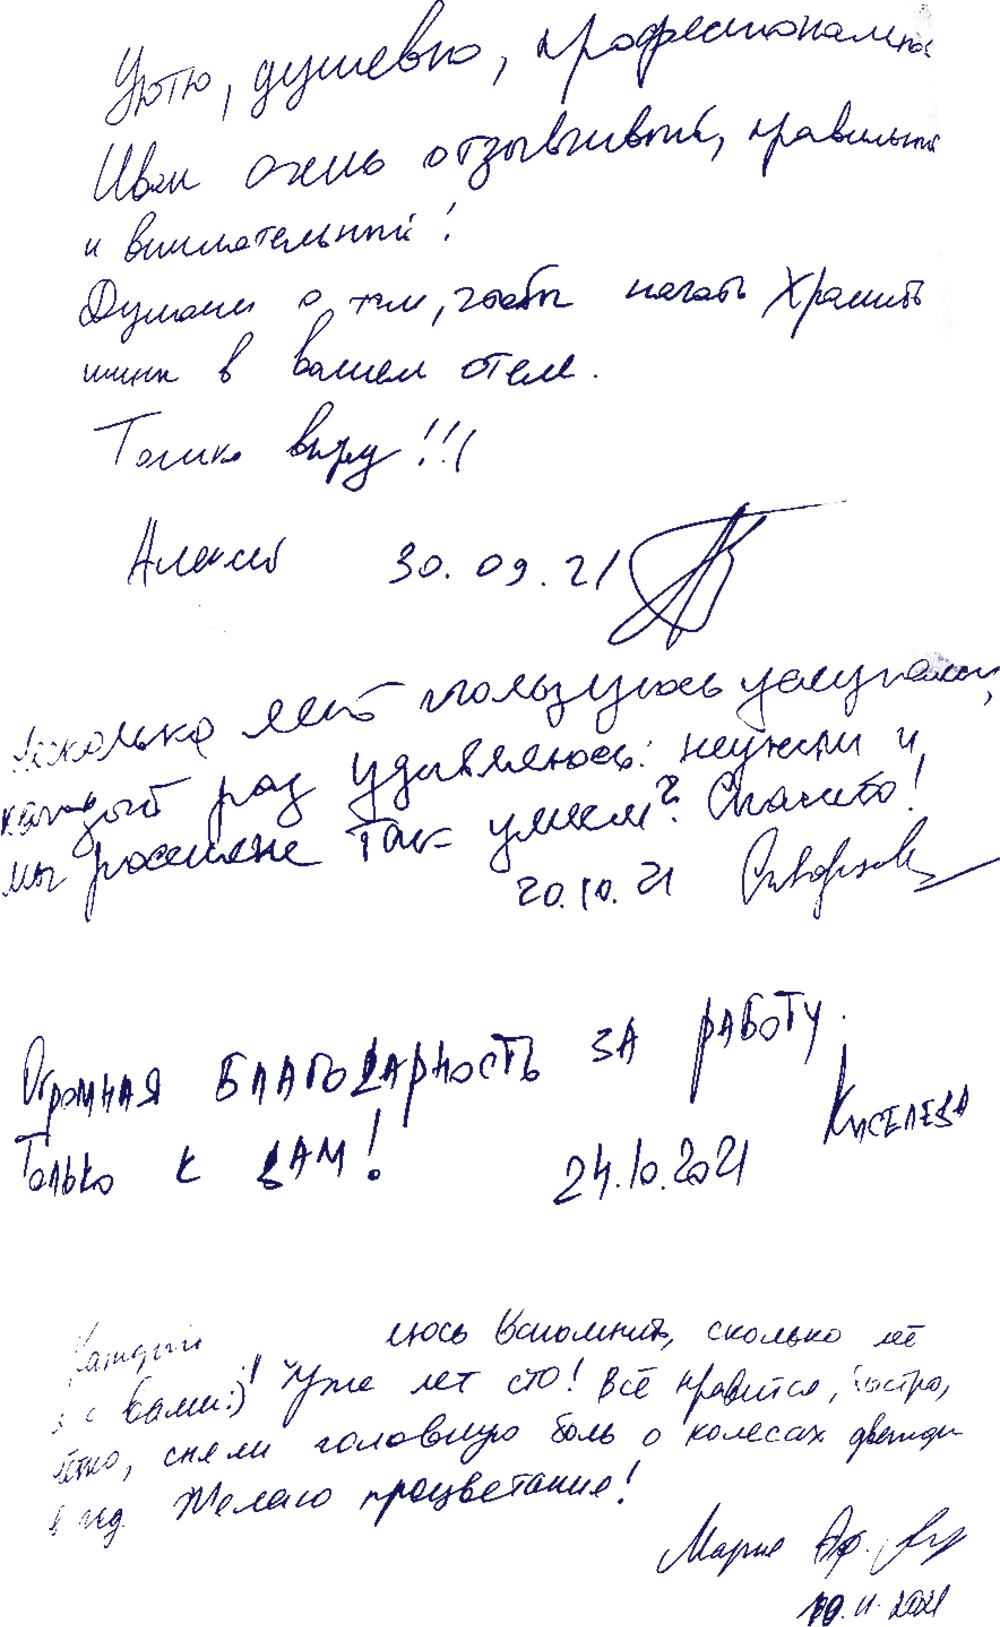 Уютно, душевно, профессионально
Иван очень отзывчивый, правильный
и внимательный!
Думаем о том, чтобы начать хранить
шины в вашем отеле.
Только вверх!!!
Алексей 30.09.21
Несколько лет пользуюсь услугами,
каждый раз удивляюсь: неужели и
мы россияне так умеем? Спасибо!
20.10.21
Огромная благодарность за работу.
Киселева
Только к вам!
24.10.2021
Каждый люсь вспомнить, сколько лет
я с вами:)! Уже лет сто! Всё нравится, быстро,
чётко, сняли головную боль о колесах дважды
в год. Желаю процветания!
Мария
10.11.2021